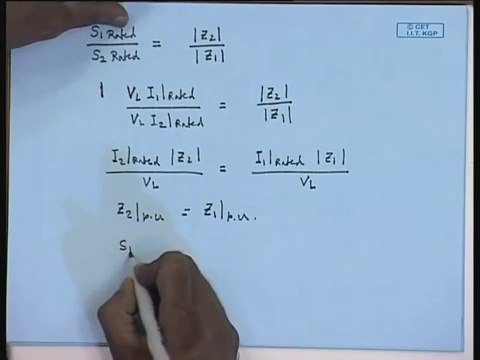 © CET
I.I.T. KGP
S₁ Rated / S₂ Rated = |Z₂| / |Z₁|
V_L I₁|Rated / V_L I₂|Rated = |Z₂| / |Z₁|
I₂|Rated |Z₂| / V_L = I₁|Rated |Z₁| / V_L
Z₂|p.u = Z₁|p.u.
S₁